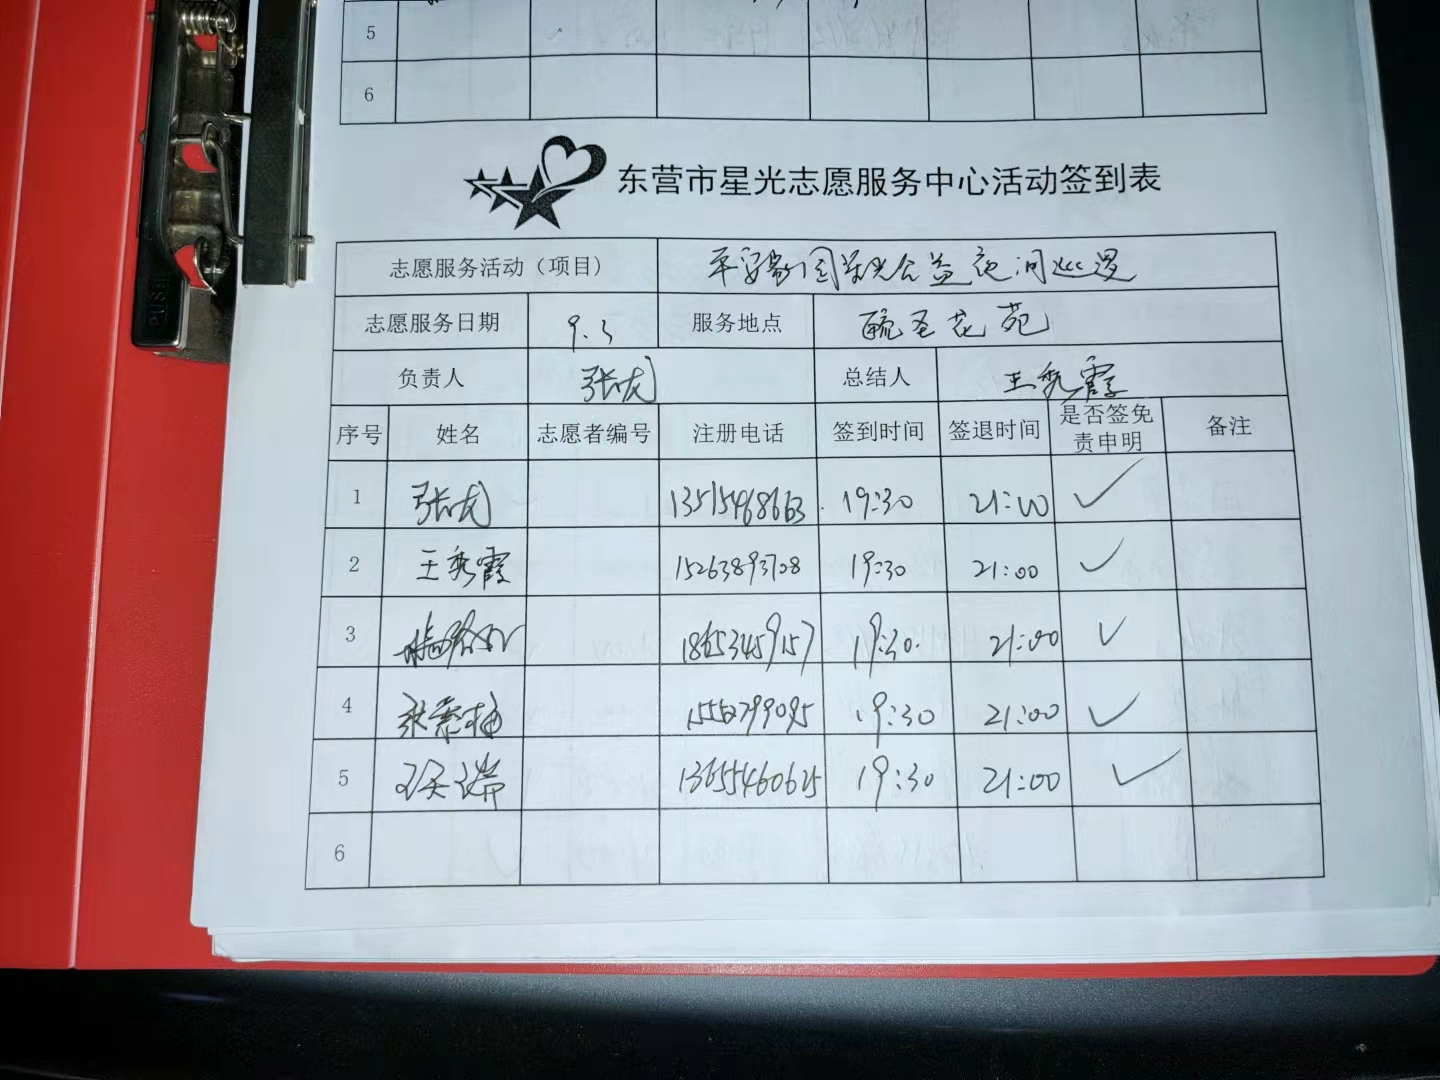 5
6
东营市星光志愿服务中心活动签到表
志愿服务活动（项目） 平安家园星光公益夜间巡逻
志愿服务日期 9.3 服务地点 花苑
负责人 张成 总结人 王秀霞
序号 姓名 志愿者编号 注册电话 签到时间 签退时间 是否签免责申明 备注
1 张成 13515468663 19:30 21:00 ✓
2 王秀霞 15263893708 19:30 21:00 ✓
3 18653459157 19:30 21:00 ✓
4 19:30 21:00 ✓
5 13655460625 19:30 21:00 ✓
6